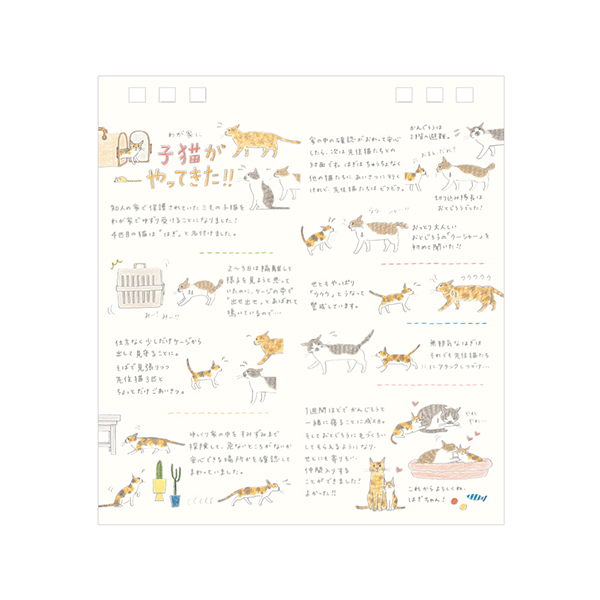 わが家に、
子猫が
やってきた!!
知人の家で保護されていたこもの子猫を
わが家でゆずり受けることになりました!
4匹目の猫は"はぎ"と名付けました。
2〜3日は隔離して
様子を見ようと思って
いたのに、ケージの中で
"出せ出せ"とあばれて
鳴いているので…
みー!
みー!!
仕方なく少しだけケージから
出して見守ることに。
そばで見張りつつ
先住猫3匹と
ちょっとだけごあいさつ。
ゆっくり家の中をすみずみまで
探検して、危ないところがないか
安心できる場所かを確認して
まわっていました。
家の中の確認がおわって安心
したら、次は先住猫たちとの
対面です。はぎはちゅうちょなく
他の猫たちにあいさつに行く
けれど、先住猫たちはどうだろう。
かんじろうは
2階へ避難。
おもしだれ!
切り込み隊長は
おとじろうでした!
ウウーシャー!!
おっとり大人しい
おとじろうの"ウーシャー"を
初めて聞いた!!
せともやっぱり
"ウウウ"とうなって
警戒しています。
ウウウウウ
無邪気なはぎは
それでも先住猫たち
にアタックしつづけ…
1週間ほどでかんじろうと
一緒に寝ることに成功。
そしておとじろうに毛づくろい
してもらえるようになり、
せとにも寄りそい、
仲間入りする
ことができました!
よかった!!
やれやれ…
これからよろしくね、
はぎちゃん!